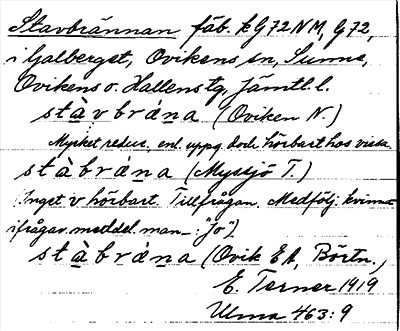 Stavbrännan fäb. k G72NM, G72,
i Galberget, Ovikens sn, Sunne,
Ovikens o. Hallens tg, Jämtl. l.
stàvbrána (Oviken N.)
Mycket reduc. enl. uppg. dock hörbart hos vissa
stàbrána (Myssjö T.)
Inget v hörbart. Tillfrågan. Medfölj. kvinna
ifrågav. meddel. man –: "Jo").
stàbrána (Ovik EA, Börtn.)
E. Terner 1919
Ulma 463:9